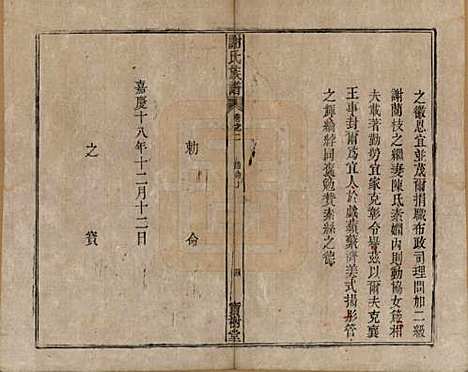 之徽恩宜並茂爾捐職布政司理問加二級
謝蘭枝之繼妻陳氏素嫻内則勤協女箴相
夫載著勤勞宜家克彰令譽茲以爾夫克襄
王事封爾為宜人於戲蘋蘩濟美式揚彤管
之輝綸綍同褒勉贊素絲之德
謝氏族譜
卷之二
四
寶樹堂
勅命
嘉慶十八年十二月十二日
之寶